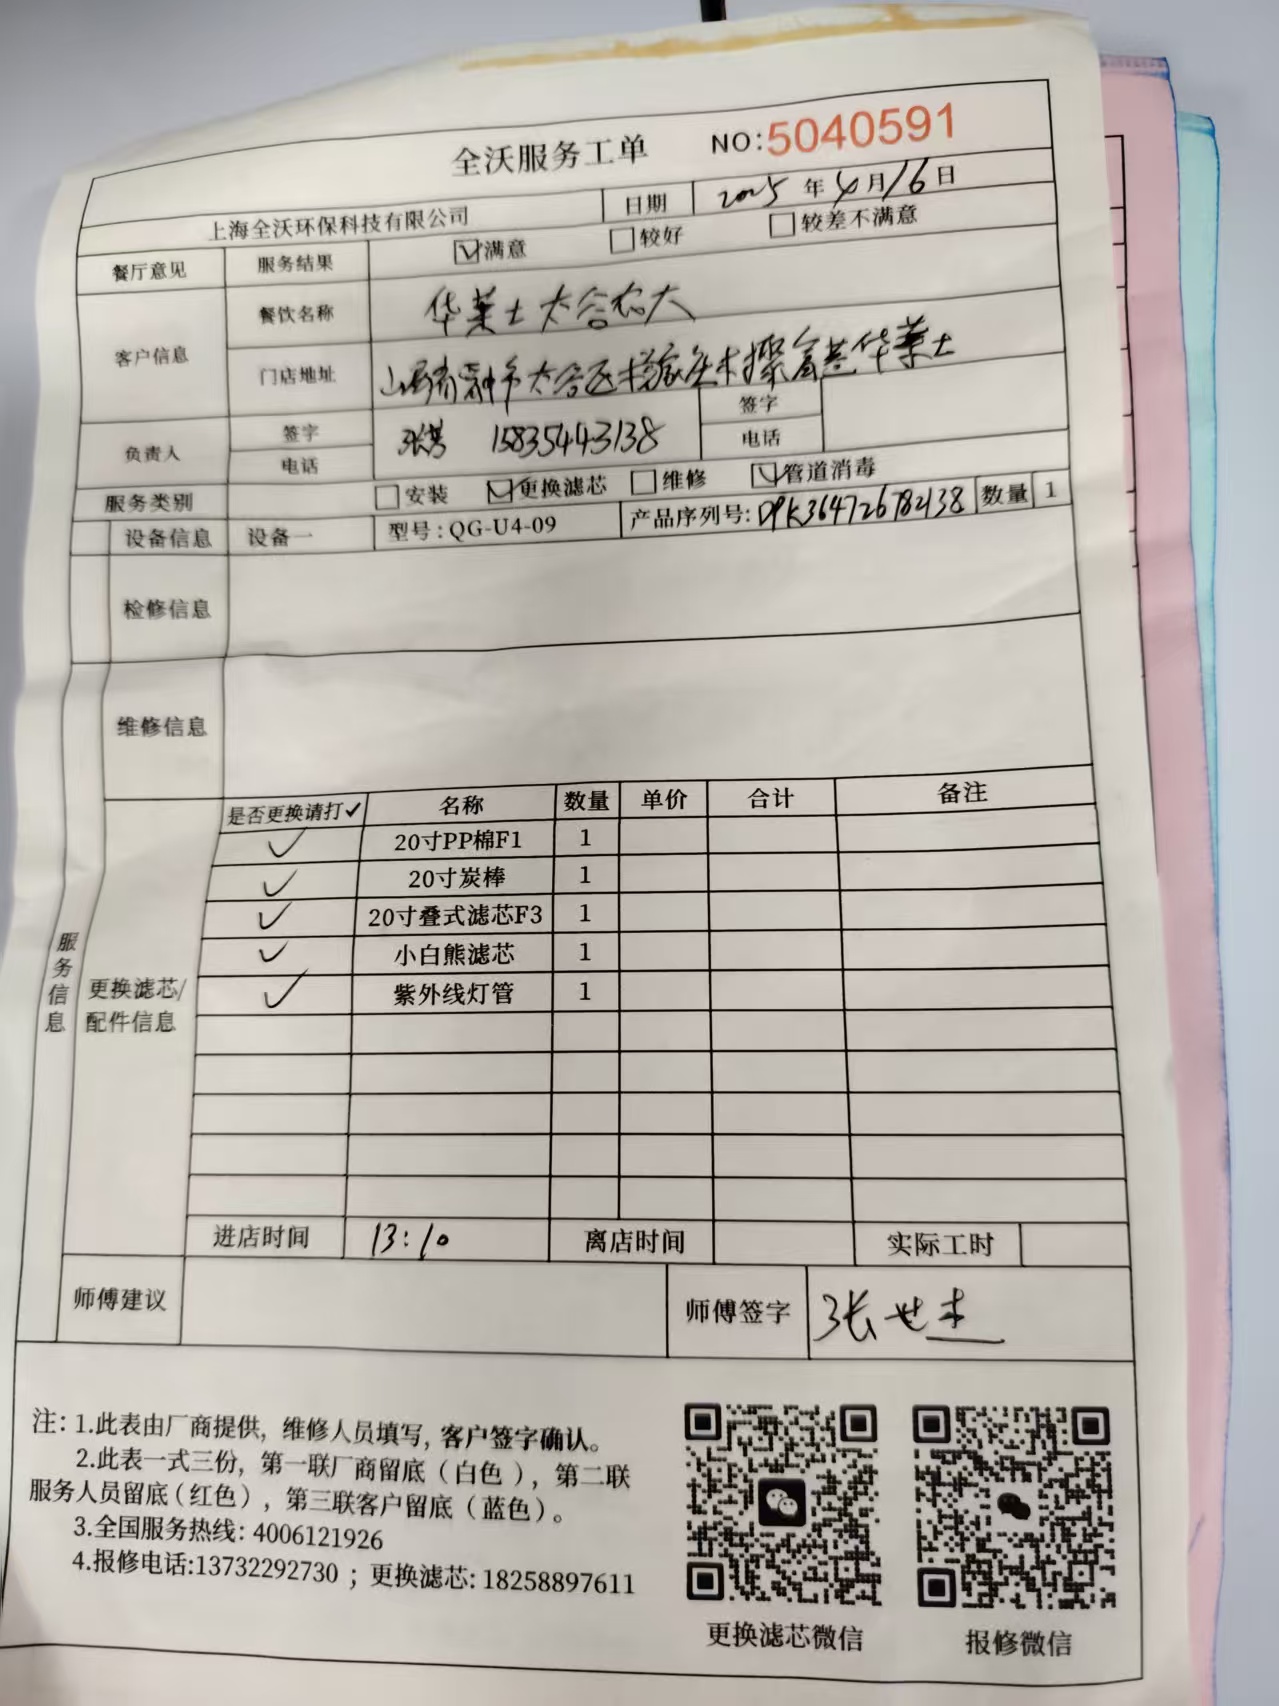 全沃服务工单 NO:5040591
上海全沃环保科技有限公司 日期 2025年4月16日
餐厅意见 服务结果 ☑满意 □较好 □较差不满意
客户信息 餐饮名称 华莱士太谷农大
门店地址 山西省晋中市太谷区杨家庄村聚富苑华莱士
负责人 签字 电话 15835443138 签字 电话
服务类别 □安装 ☑更换滤芯 □维修 ☑管道消毒
设备信息 设备一 型号:QG-U4-09 产品序列号: 数量 1
检修信息
维修信息
服务信息
更换滤芯/配件信息
是否更换请打✓ 名称 数量 单价 合计 备注
✓ 20寸PP棉F1 1
✓ 20寸炭棒 1
✓ 20寸叠式滤芯F3 1
✓ 小白熊滤芯 1
✓ 紫外线灯管 1
进店时间 13:10 离店时间 实际工时
师傅建议 师傅签字 张世杰
注: 1.此表由厂商提供, 维修人员填写, 客户签字确认。
2.此表一式三份, 第一联厂商留底(白色), 第二联
服务人员留底(红色), 第三联客户留底(蓝色)。
3.全国服务热线: 4006121926
4.报修电话:13732292730 ; 更换滤芯: 18258897611
更换滤芯微信 报修微信